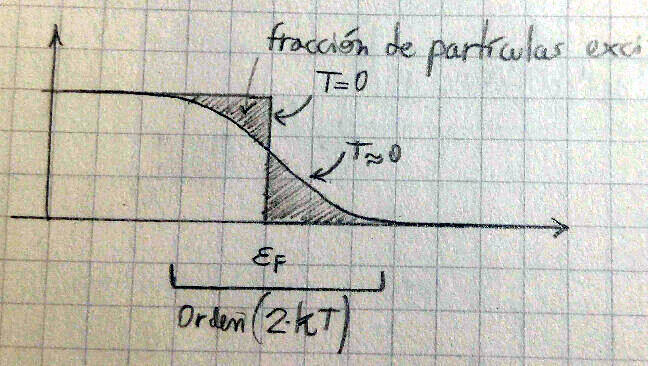 fracción de partículas exci
T=0
T≈0
εF
Orden (2·kT)